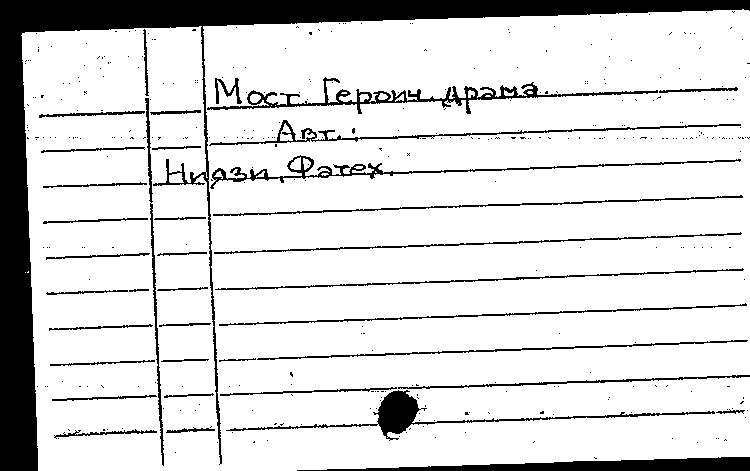 Мост. Героич. драма.
Авт.:
Ниязи, Фатех.